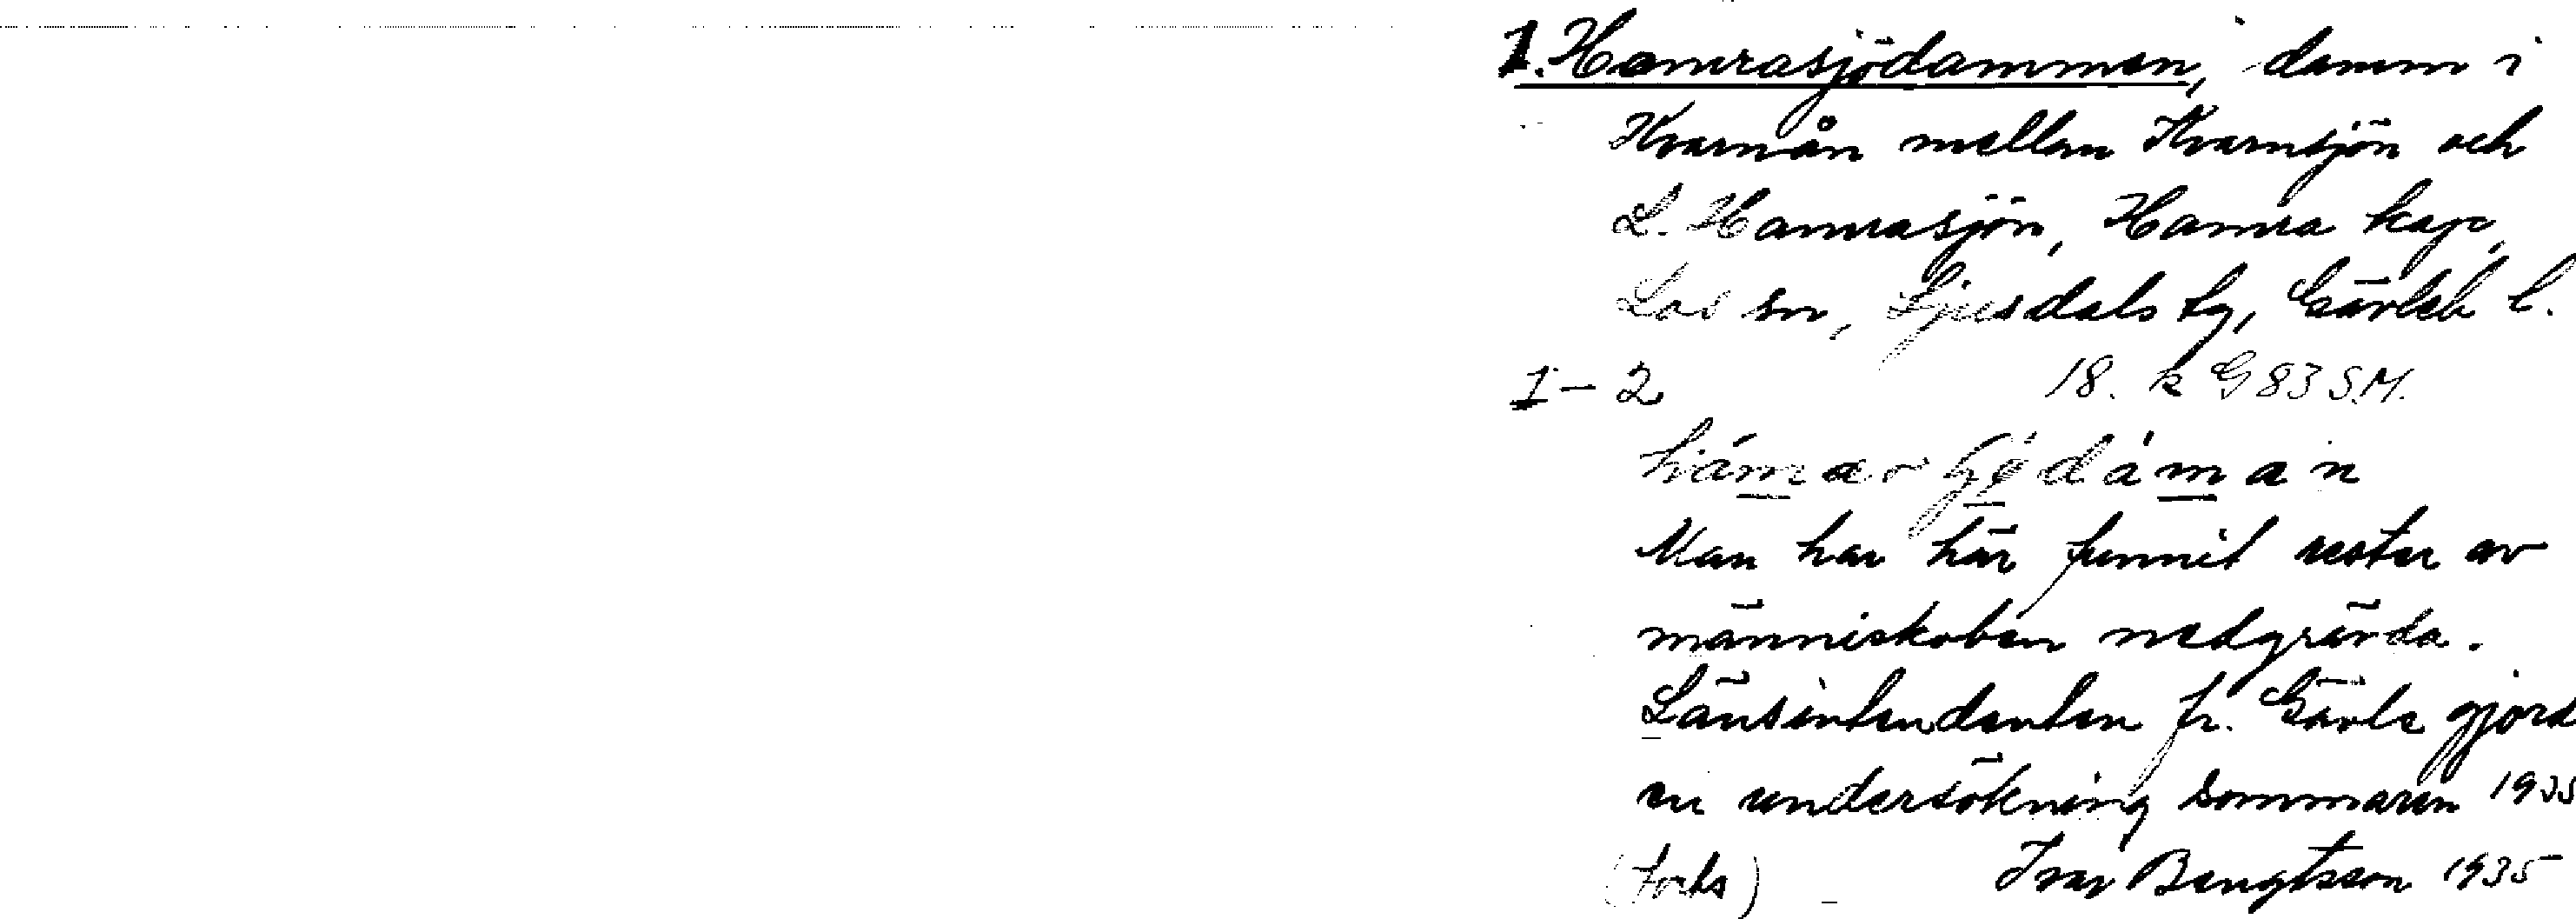 1. Hamrasjödammen, damm i
Kvarnån mellan Kvarnsjön och
L. Hamrasjön, Hamra kap,
Los sn, Ljusdals tg, Gävleb l.
1-2 18. k G 83 S.M.
Man har här funnit rester av
människoben nedgrävda.
Länsintendenten fr. Gävle gjord
en undersökning sommaren 1935
(forts) Ivar Bengtsson 1935